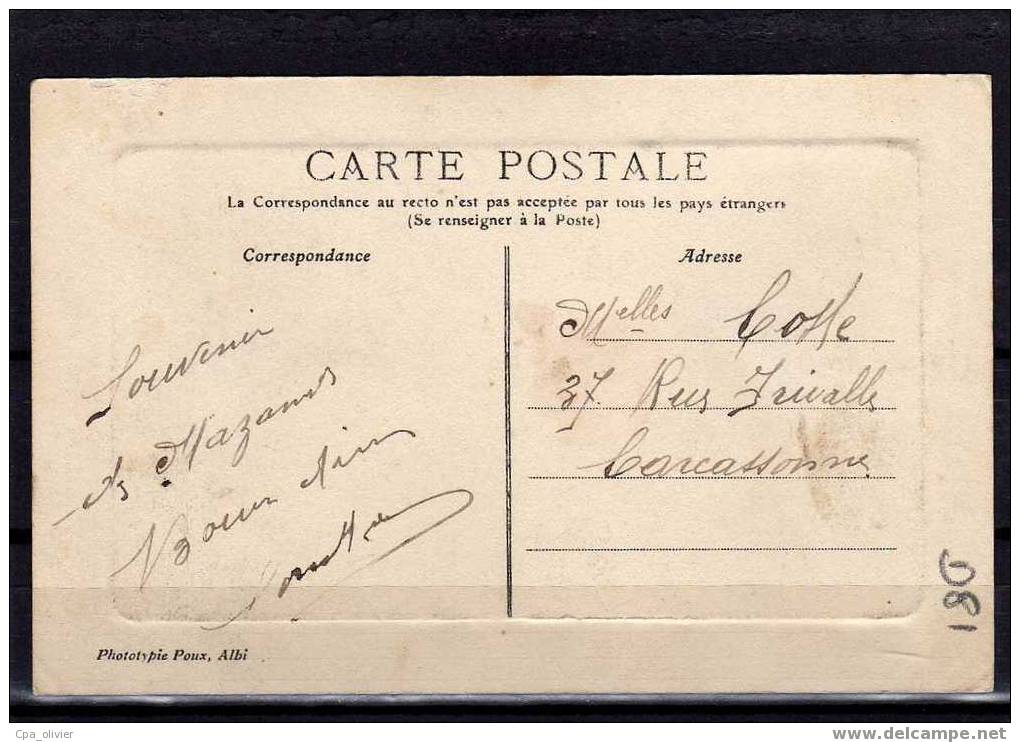 CARTE POSTALE
La Correspondance au recto n'est pas acceptée par tous les pays étrangers
(Se renseigner à la Poste)
Correspondance
Adresse
Souvenir
de Mazamet
Melles
37 Rue Trivalle
Carcassonne
180
Phototypie Poux, Albi
Cpa_olivier
www.delcampe.net